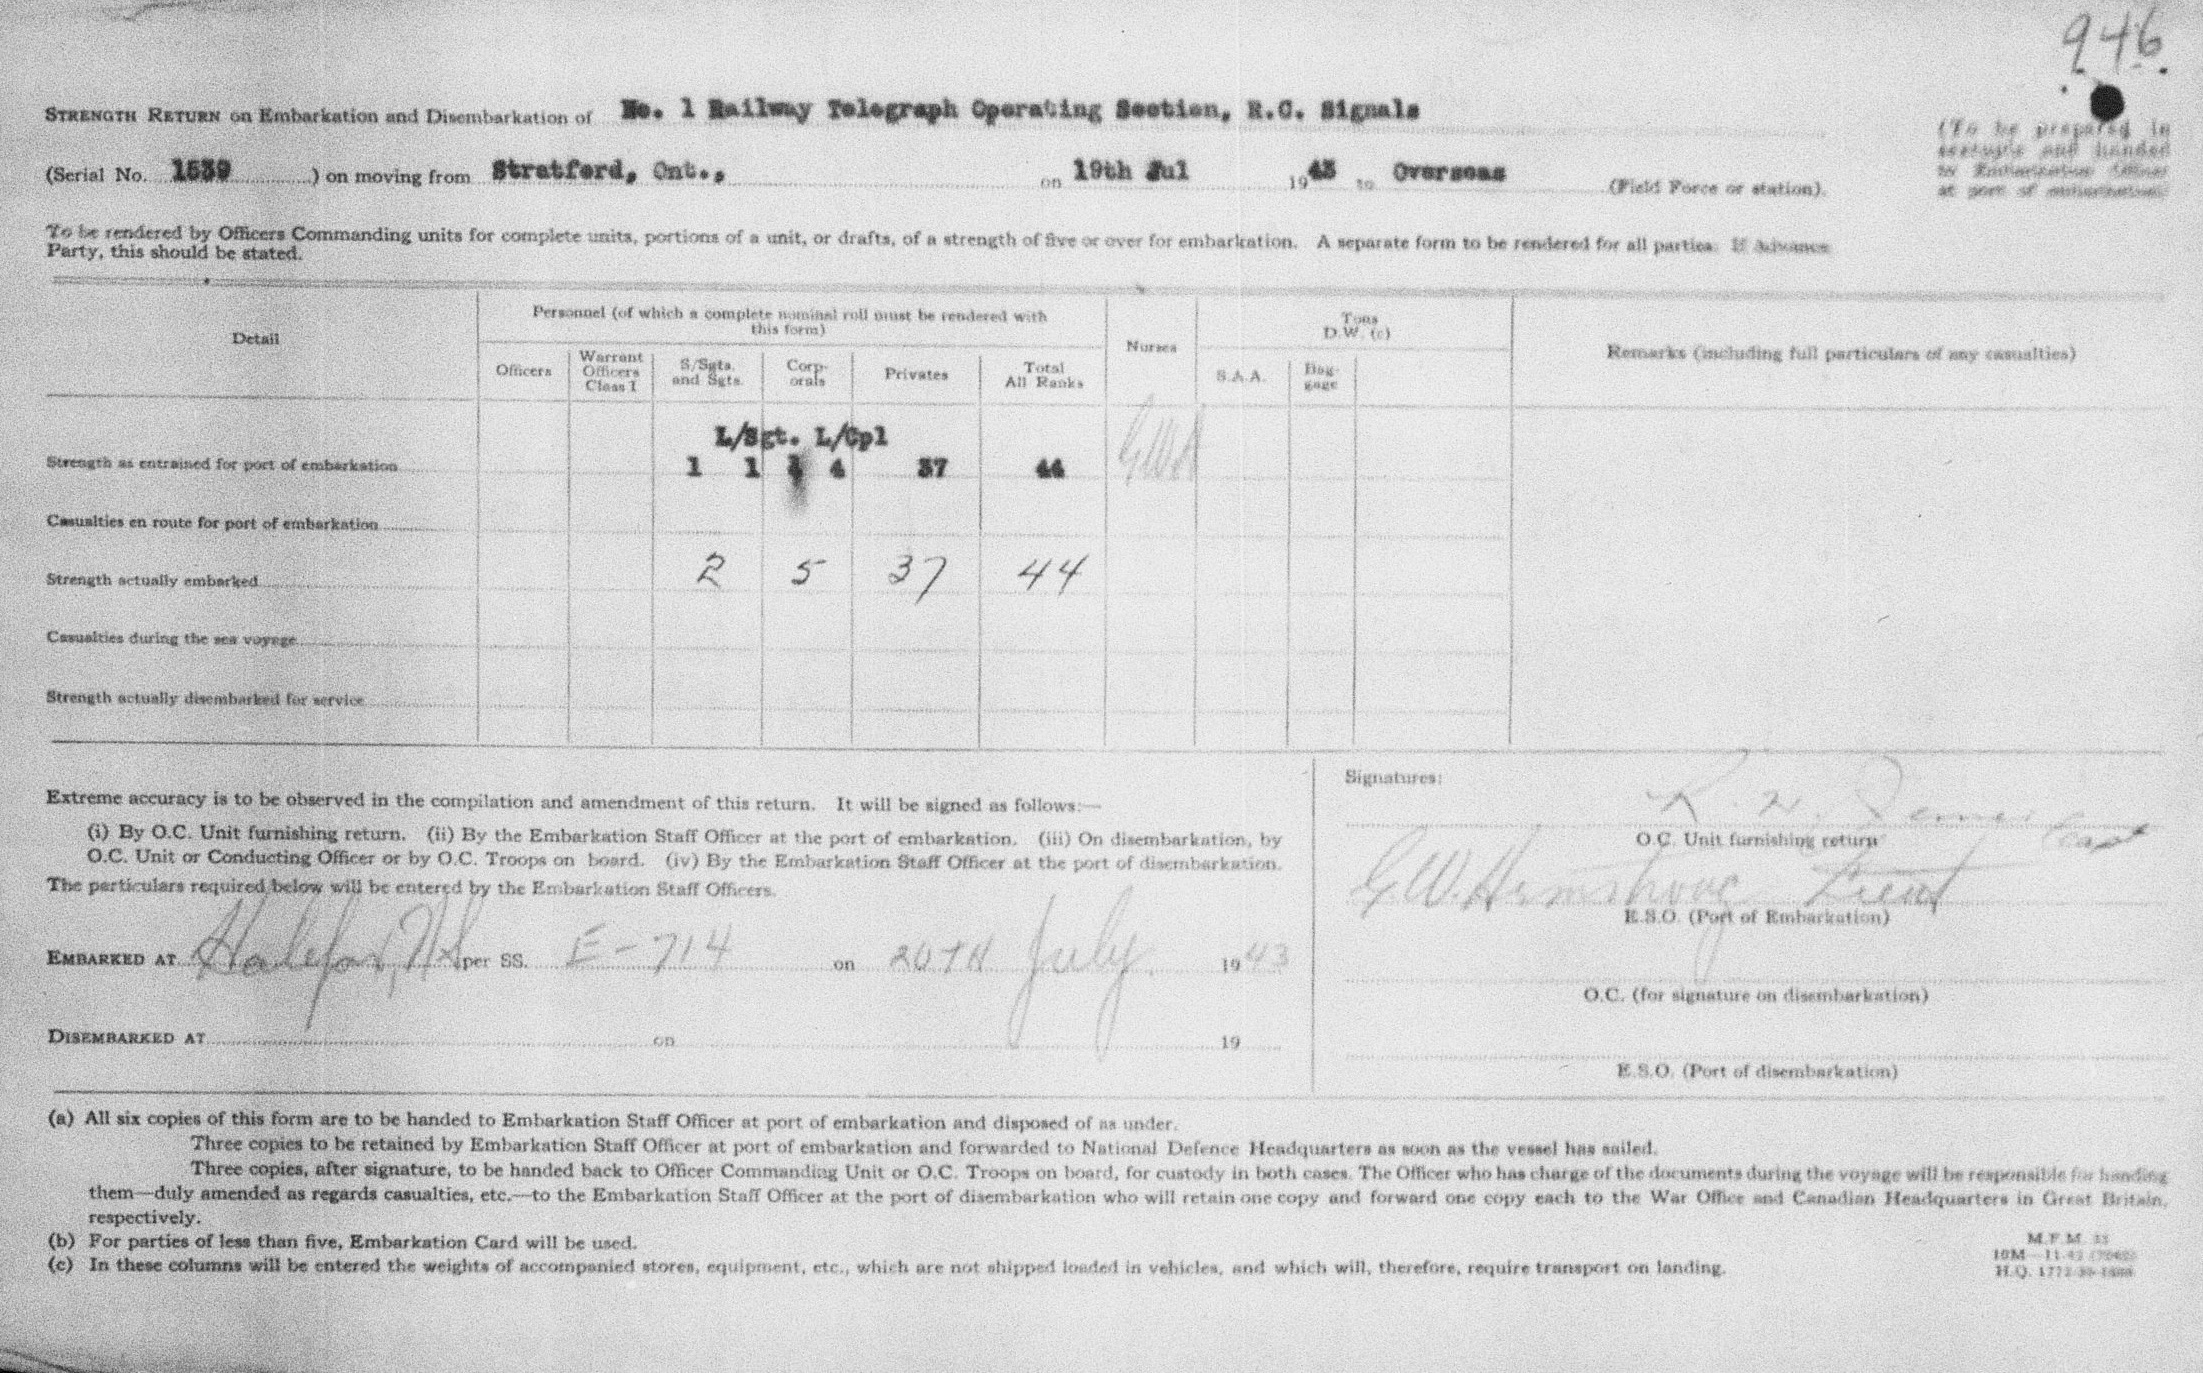 946
STRENGTH RETURN on Embarkation and Disembarkation of No. 1 Railway Telegraph Operating Section, R.C. Signals
(To be prepared in
and handed
to Embarkation Officer
at port of embarkation)
(Serial No. 1539 ) on moving from Stratford, Ont., on 19th Jul 1943 to Overseas (Field Force or station).
To be rendered by Officers Commanding units for complete units, portions of a unit, or drafts, of a strength of five or over for embarkation. A separate form to be rendered for all parties. If Advance
Party, this should be stated.
Detail
Personnel (of which a complete nominal roll must be rendered with
this form)
Officers
Warrant
Officers
Class I
S/Sgts.
and Sgts.
Corp-
orals
Privates
Total
All Ranks
Nurses
Tons
D.W. (c)
S.A.A.
Bag-
gage
Remarks (including full particulars of any casualties)
L/Sgt. L/Cpl
Strength as entrained for port of embarkation 1 1 1 4 37 44
Casualties en route for port of embarkation
Strength actually embarked 2 5 37 44
Casualties during the sea voyage
Strength actually disembarked for service
Extreme accuracy is to be observed in the compilation and amendment of this return. It will be signed as follows:—
(i) By O.C. Unit furnishing return. (ii) By the Embarkation Staff Officer at the port of embarkation. (iii) On disembarkation, by
O.C. Unit or Conducting Officer or by O.C. Troops on board. (iv) By the Embarkation Staff Officer at the port of disembarkation.
The particulars required below will be entered by the Embarkation Staff Officers.
EMBARKED AT Halifax, NS per SS. E-714 on 20TH July 1943
DISEMBARKED AT on 19
Signatures:
O.C. Unit furnishing return
G.W. Lieut
E.S.O. (Port of Embarkation)
O.C. (for signature on disembarkation)
E.S.O. (Port of disembarkation)
(a) All six copies of this form are to be handed to Embarkation Staff Officer at port of embarkation and disposed of as under.
Three copies to be retained by Embarkation Staff Officer at port of embarkation and forwarded to National Defence Headquarters as soon as the vessel has sailed.
Three copies, after signature, to be handed back to Officer Commanding Unit or O.C. Troops on board, for custody in both cases. The Officer who has charge of the documents during the voyage will be responsible for handing
them—duly amended as regards casualties, etc.—to the Embarkation Staff Officer at the port of disembarkation who will retain one copy and forward one copy each to the War Office and Canadian Headquarters in Great Britain,
respectively.
(b) For parties of less than five, Embarkation Card will be used.
(c) In these columns will be entered the weights of accompanied stores, equipment, etc., which are not shipped loaded in vehicles, and which will, therefore, require transport on landing.
M.F.M. 
10M—11-42
H.Q. 1772-39-